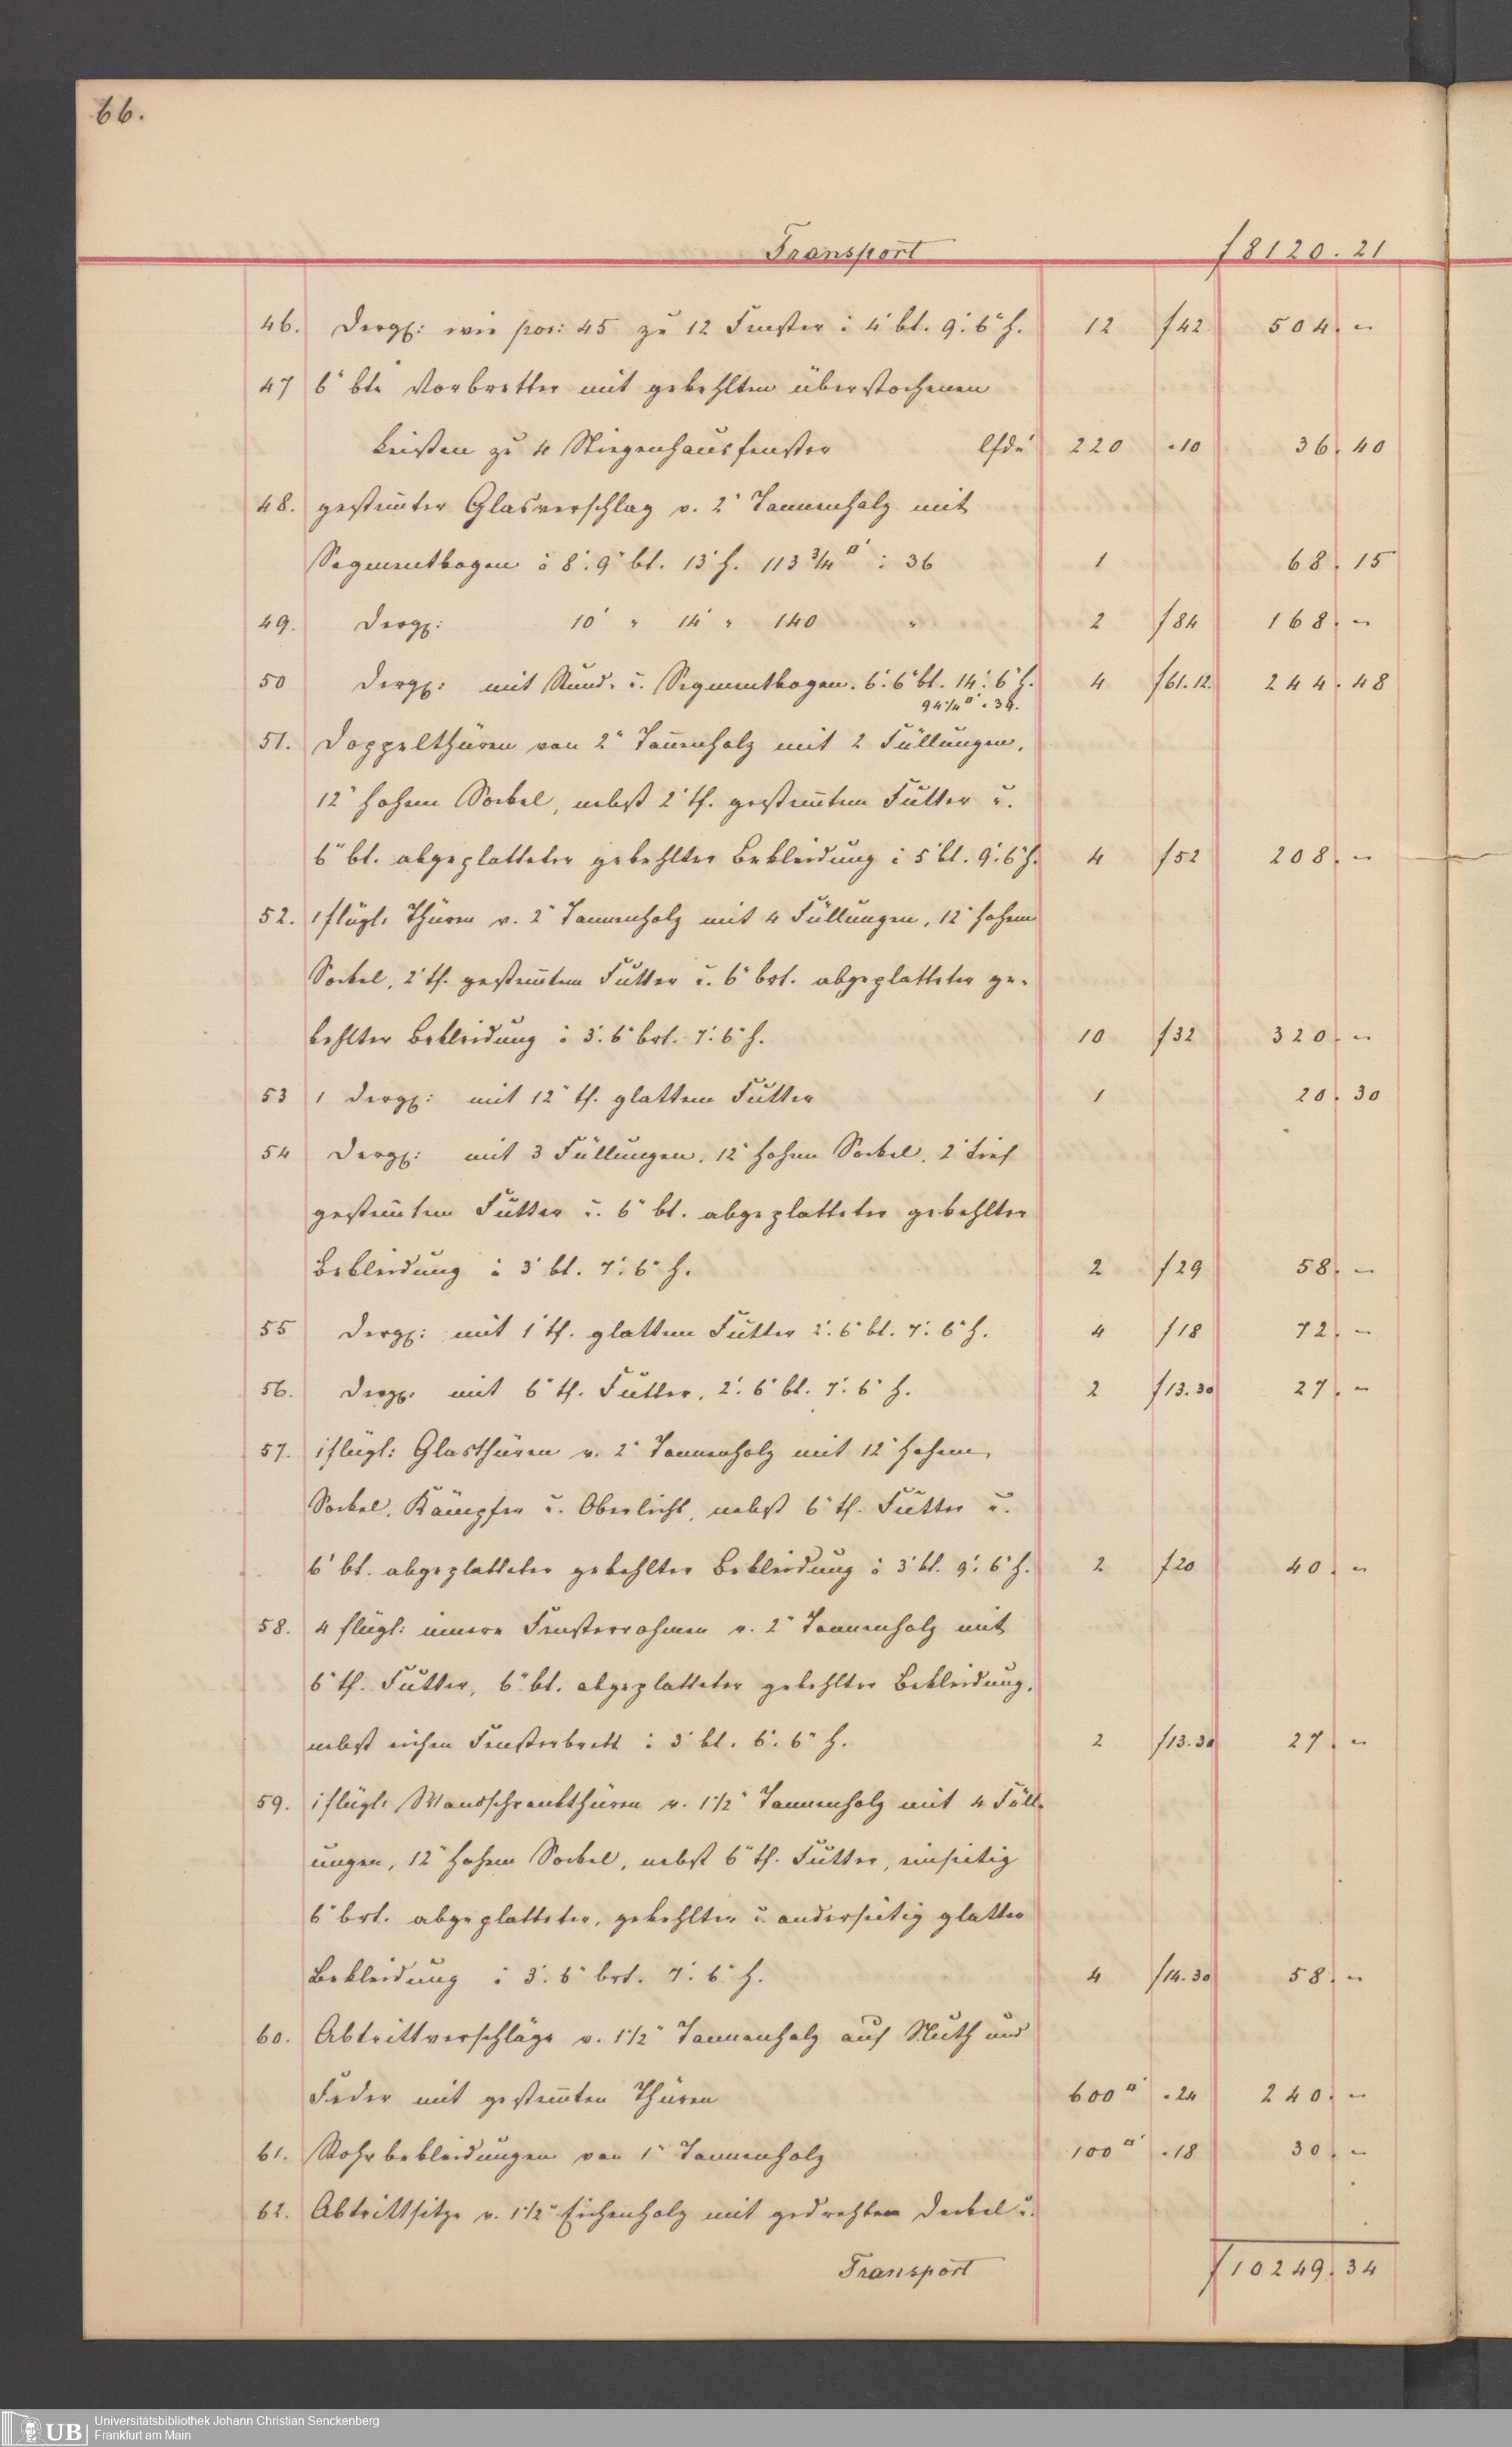 66.
Transport f 8120. 21
46. Dergl: wie pos: 45 zu 12 Fenster à 4' bt. 9': 6" h. 12 f 42 504. "
47 6" bte Vorbretter mit gekehlten überstochenen
Leisten zu 4 Stiegenhausfenster lfde' 220 "10 36. 40
48. gestem̄ter Glasverschlag v. 2" Tannenholz mit
Segmentbogen à 8': 9" bt. 13' h. 113 3/4 □' à 36 1 68. 15
49. Dergl: 10' " 14' " 140 " 2 f 84 168. "
50 Dergl: mit Rund- u. Segmentbogen. 6': 6" bt. 14': 6" h. 4 f 61.12. 244. 48
94 1/4 □' à 39.
51. Doppelthüren von 2" Tan̄enholz mit 2 Füllungen,
12" hohem Sockel, nebst 2' tf. gestem̄tem Futter u.
6" bt. abgeplatteter gekehlter Bekleidung à 5' bt. 9': 6" h. 4 f 52 208. "
52. 1flügl: Thüren v. 2" Tannenholz mit 4 Füllungen, 12" hohem
Sockel, 2' tf. gestem̄tem Futter u. 6" brt. abgeplatteter ge-
kehlter Bekleidung à 3': 6" brt. 7': 6" h. 10 f 32 320. "
53 1 Dergl: mit 12" tf. glattem Futter 1 20. 30
54 Dergl: mit 3 Füllungen, 12" hohem Sockel, 2' tief
gestem̄tem Futter u. 6" bt. abgeplatteter gekehlter
Bekleidung à 3' bt. 7': 6" h. 2 f 29 58. "
55 Dergl: mit 1' tf. glattem Futter 2': 6" bt. 7': 6" h. 4 f 18 72. "
56. Dergl: mit 6" tf. Futter, 2': 6" bt. 7': 6" h. 2 f 13.30 27. "
57. 1flügl: Glasthüren v. 2" Tannenholz mit 12" hohem
Sockel, Kämpfer u. Oberlicht, nebst 6" tf. Futter u.
6" bt. abgeplatteter gekehlter Bekleidung à 3' bt. 9': 6" h. 2 f 20 40. "
58. 4 flügl: innere Fensterrahmen v. 2" Tannenholz mit
6" tf. Futter, 6" bt. abgeplatteter gekehlter Bekleidung,
nebst eichen Fensterbrett à 3' bt. 6': 6" h. 2 f 13.30 27. "
59. 1flügl: Wandschrankthüren v. 1 1/2" Tannenholz mit 4 Füll-
ungen, 12" hohem Sockel, nebst 6" tf. Futter, einseitig
6" brt. abgeplatteter, gekehlter u. anderseitig glatter
Bekleidung à 3': 6" brt. 7': 6" h. 4 f 14.30 58. "
60. Abtrittverschläge v. 1 1/2" Tannenholz auf Nuth und
Feder mit gestem̄ten Thüren 600 □' "24 240. "
61. Rohrbekleidungen von 1" Tannenholz 100 □' "18 30. "
62. Abtrittsitze v. 1 1/2" Eichenholz mit gedrehtem Deckel u.
Transport f 10249. 34
UB
Universitätsbibliothek Johann Christian Senckenberg
Frankfurt am Main